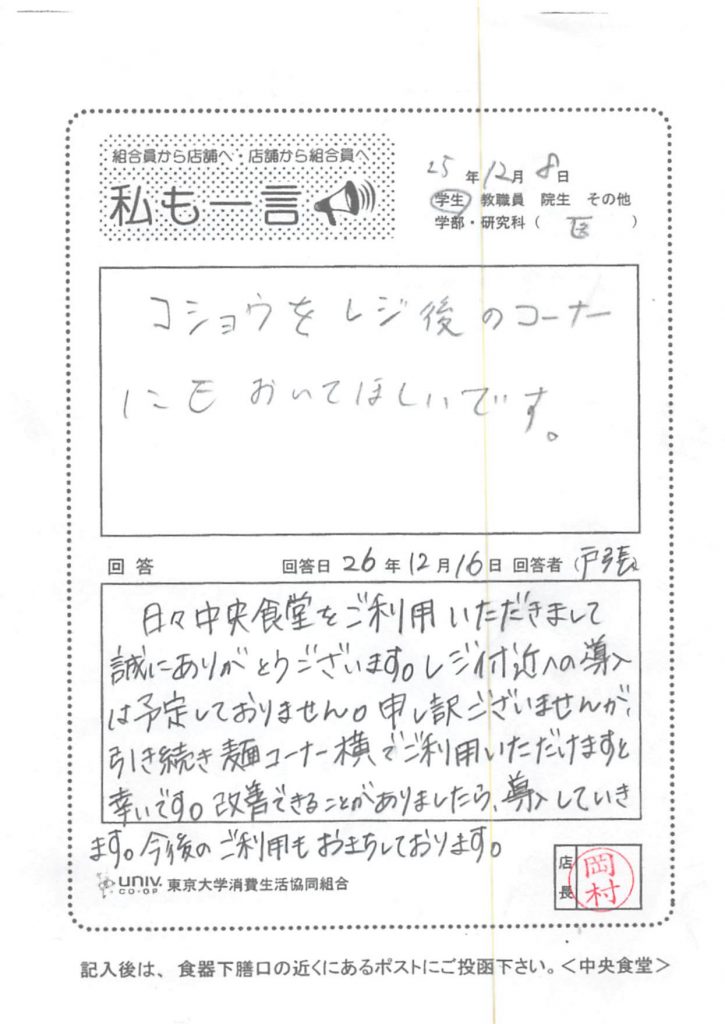 組合員から店舗へ・店舗から組合員へ
私も一言
25年12月8日
学生 教職員 院生 その他
学部・研究科（ 医 ）
コショウをレジ後のコーナー
にもおいてほしいです。
回答 回答日 26年12月16日 回答者（戸張
日々中央食堂をご利用いただきまして
誠にありがとうございます。レジ付近への導入
は予定しておりません。申し訳ございませんが、
引き続き麺コーナー横でご利用いただけますと
幸いです。改善できることがありましたら、導入していき
ます。今後のご利用もおまちしております。
UNIV. CO-OP 東京大学消費生活協同組合
店長 岡村
記入後は、食器下膳口の近くにあるポストにご投函下さい。＜中央食堂＞